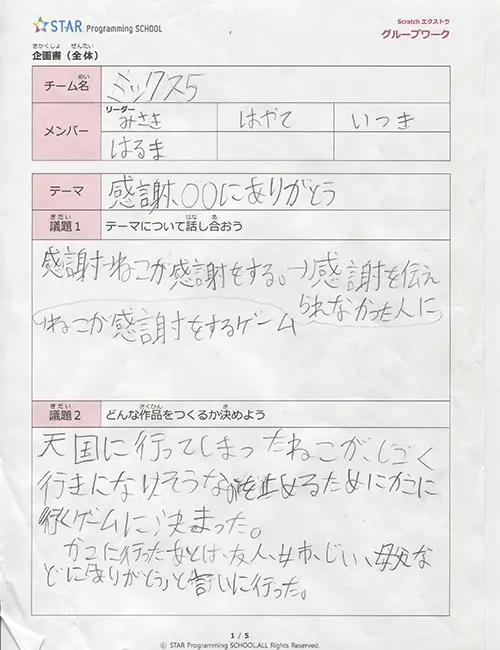 STAR Programming SCHOOL
Scratch エクストラ
グループワーク
きかくしょ ぜんたい
企画書（全体）
めい
チーム名 ミックス5
リーダー
メンバー みさき はやて いつき
はるま
テーマ 感謝、〇〇にありがとう
ぎだい はな あ
議題1 テーマについて話し合おう
感謝→ねこが感謝をする。→感謝を伝え
られなかった人に
→ねこが感謝をするゲーム
ぎだい さくひん き
議題2 どんな作品をつくるか決めよう
天国に行ってしまったねこが、じごく
行きになりそうなのを止めるためにかこに
行くゲームに決まった。
かこに行ったあとは、友人、じい、母父な
どに「ありがとう」と言いに行った。
1 / 5
© STAR Programming SCHOOL.ALL Rights Reserved.